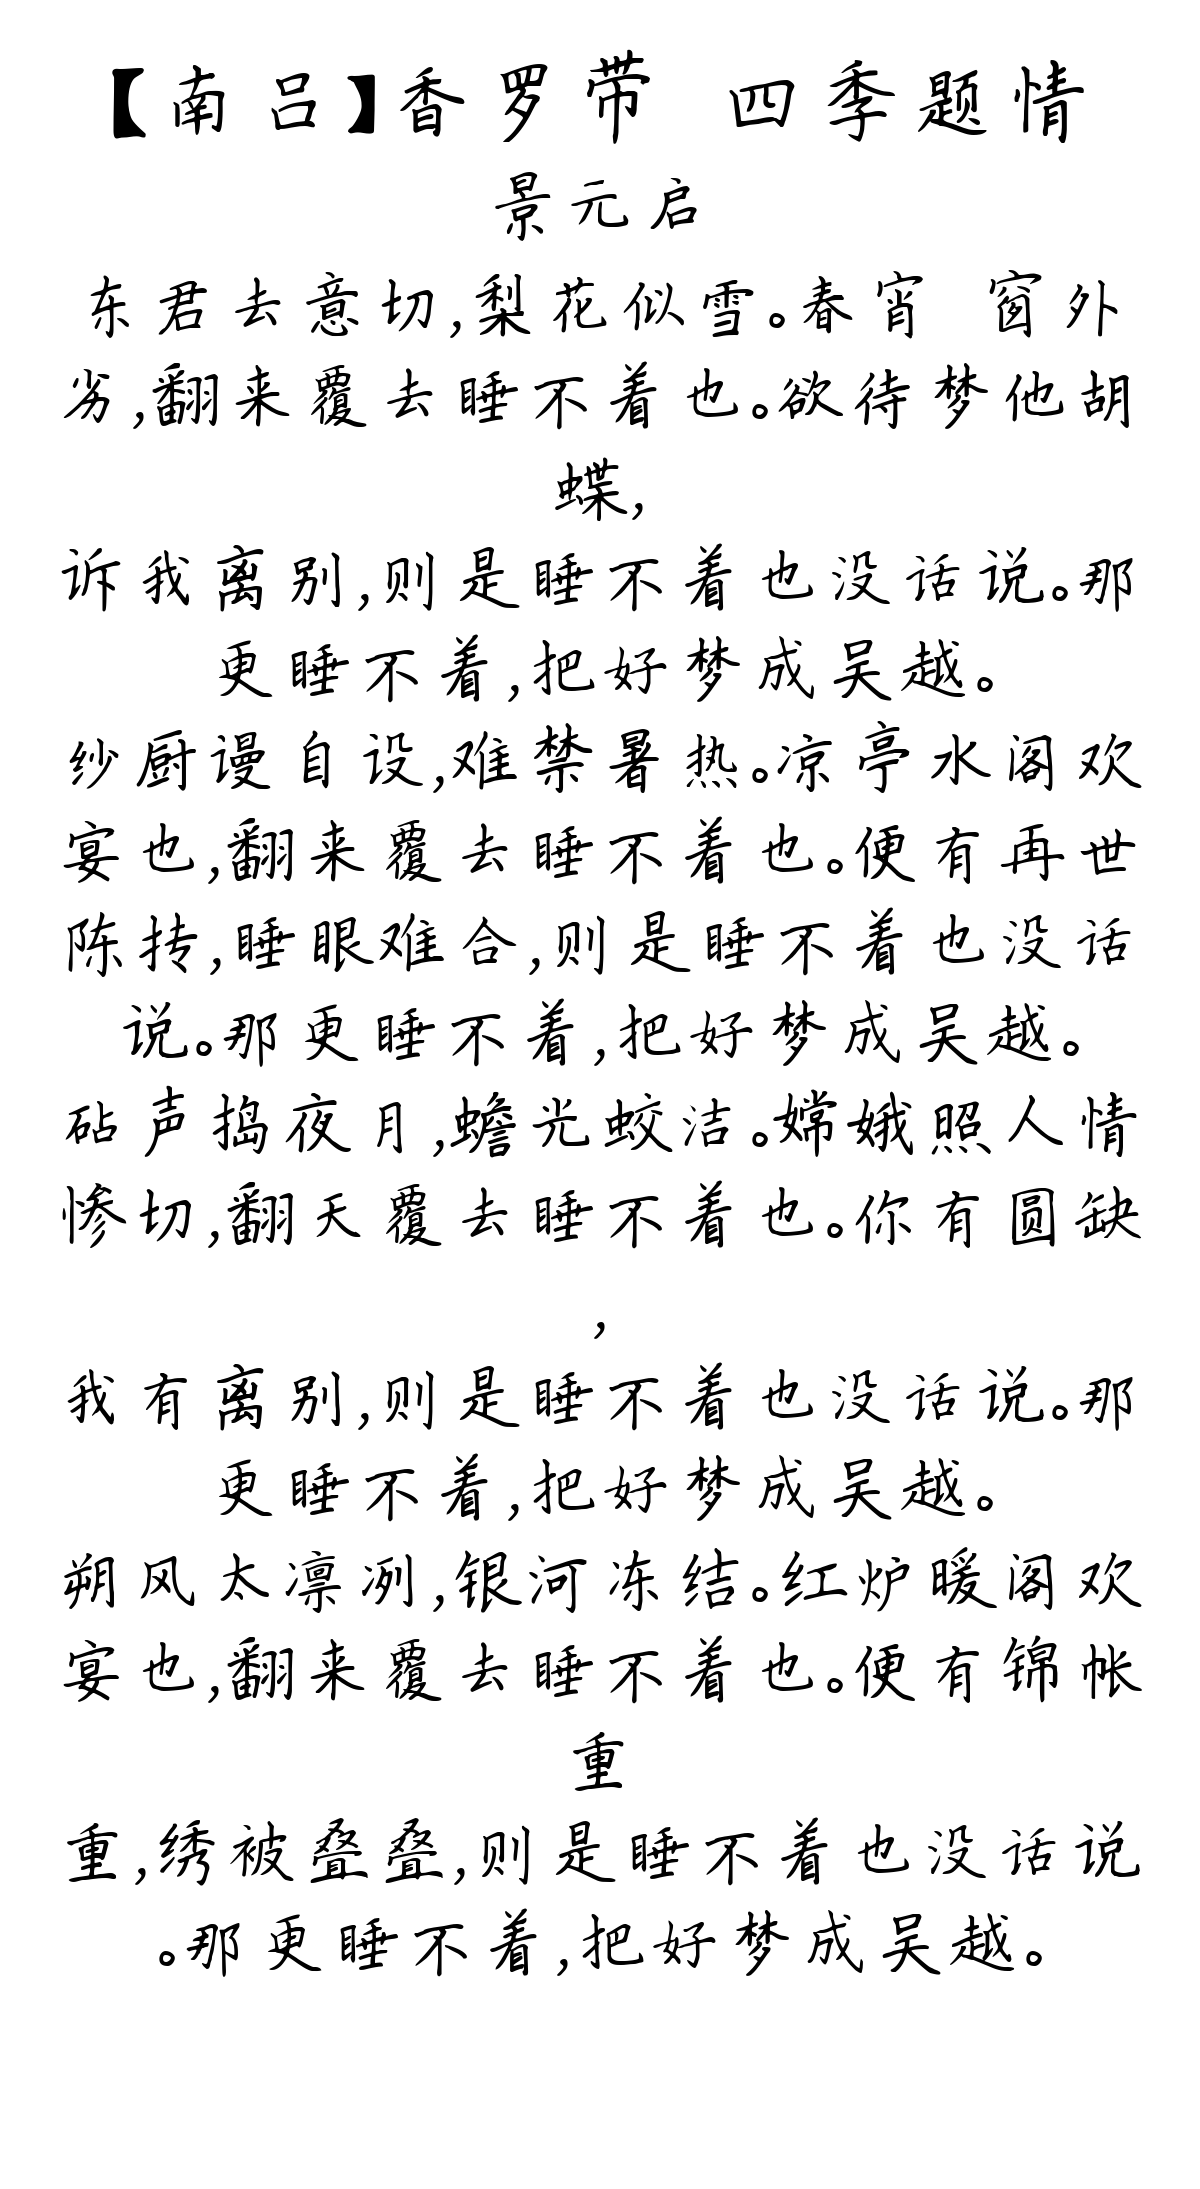 【南吕】香罗带 四季题情
景元启
东君去意切,梨花似雪。春宵 窗外
劣,翻来覆去睡不着也。欲待梦他胡
蝶,
诉我离别,则是睡不着也没话说。那
更睡不着,把好梦成吴越。
纱厨谩自设,难禁暑热。凉亭水阁欢
宴也,翻来覆去睡不着也。便有再世
陈抟,睡眼难合,则是睡不着也没话
说。那更睡不着,把好梦成吴越。
砧声捣夜月,蟾光蛟洁。嫦娥照人情
惨切,翻天覆去睡不着也。你有圆缺
,
我有离别,则是睡不着也没话说。那
更睡不着,把好梦成吴越。
朔风太凛冽,银河冻结。红炉暖阁欢
宴也,翻来覆去睡不着也。便有锦帐
重
重,绣被叠叠,则是睡不着也没话说
。那更睡不着,把好梦成吴越。